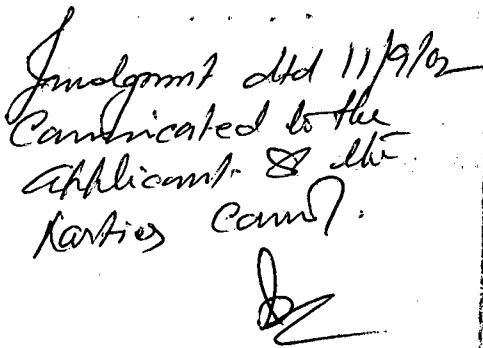 Judgment dtd 11/9/02
Communicated to the
applicant & the
Parties